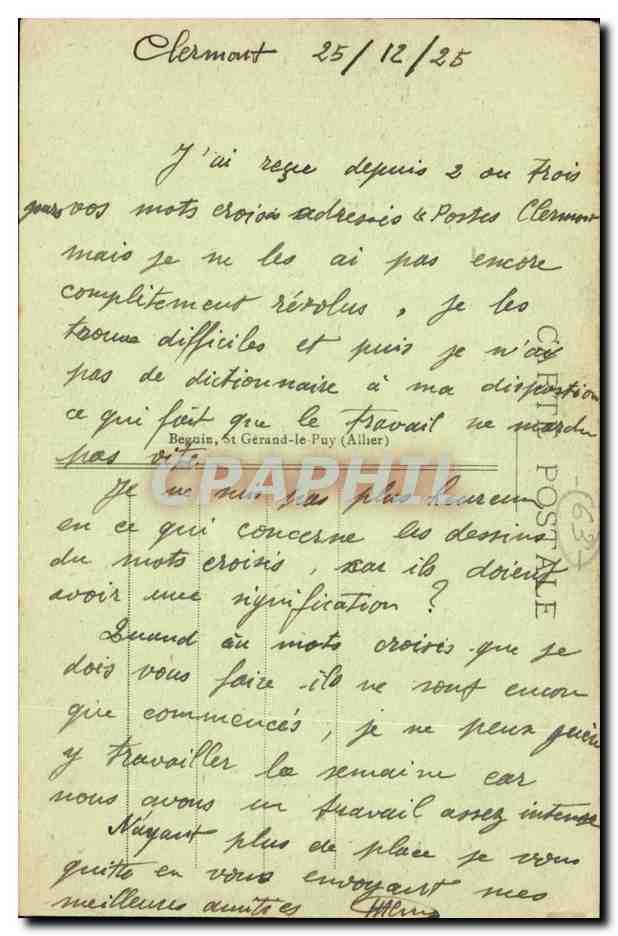 Clermont 25/12/25
J'ai reçu depuis 2 ou trois
jours vos mots croisés adressés "Postes Clermont
mais je ne les ai pas encore
complètement résolus, je les
trouve difficiles et puis je n'ai
pas de dictionnaire à ma disposition
ce qui fait que le travail ne marche
Beguin, St Gérand-le-Puy (Allier)
pas vite.
CPARAPHIL
Je ne suis pas plus heureux
en ce qui concerne les dessins
du mots croisés, car ils doivent
avoir une signification ?
Quand au mots croisés que je
dois vous faire ils ne sont encore
que commencés, je ne peux guère
y travailler la semaine car
nous avons un travail assez intense
N'ayant plus de place je vous
quitte en vous envoyant mes
meilleures amitiés
CARTE POSTALE
-63-